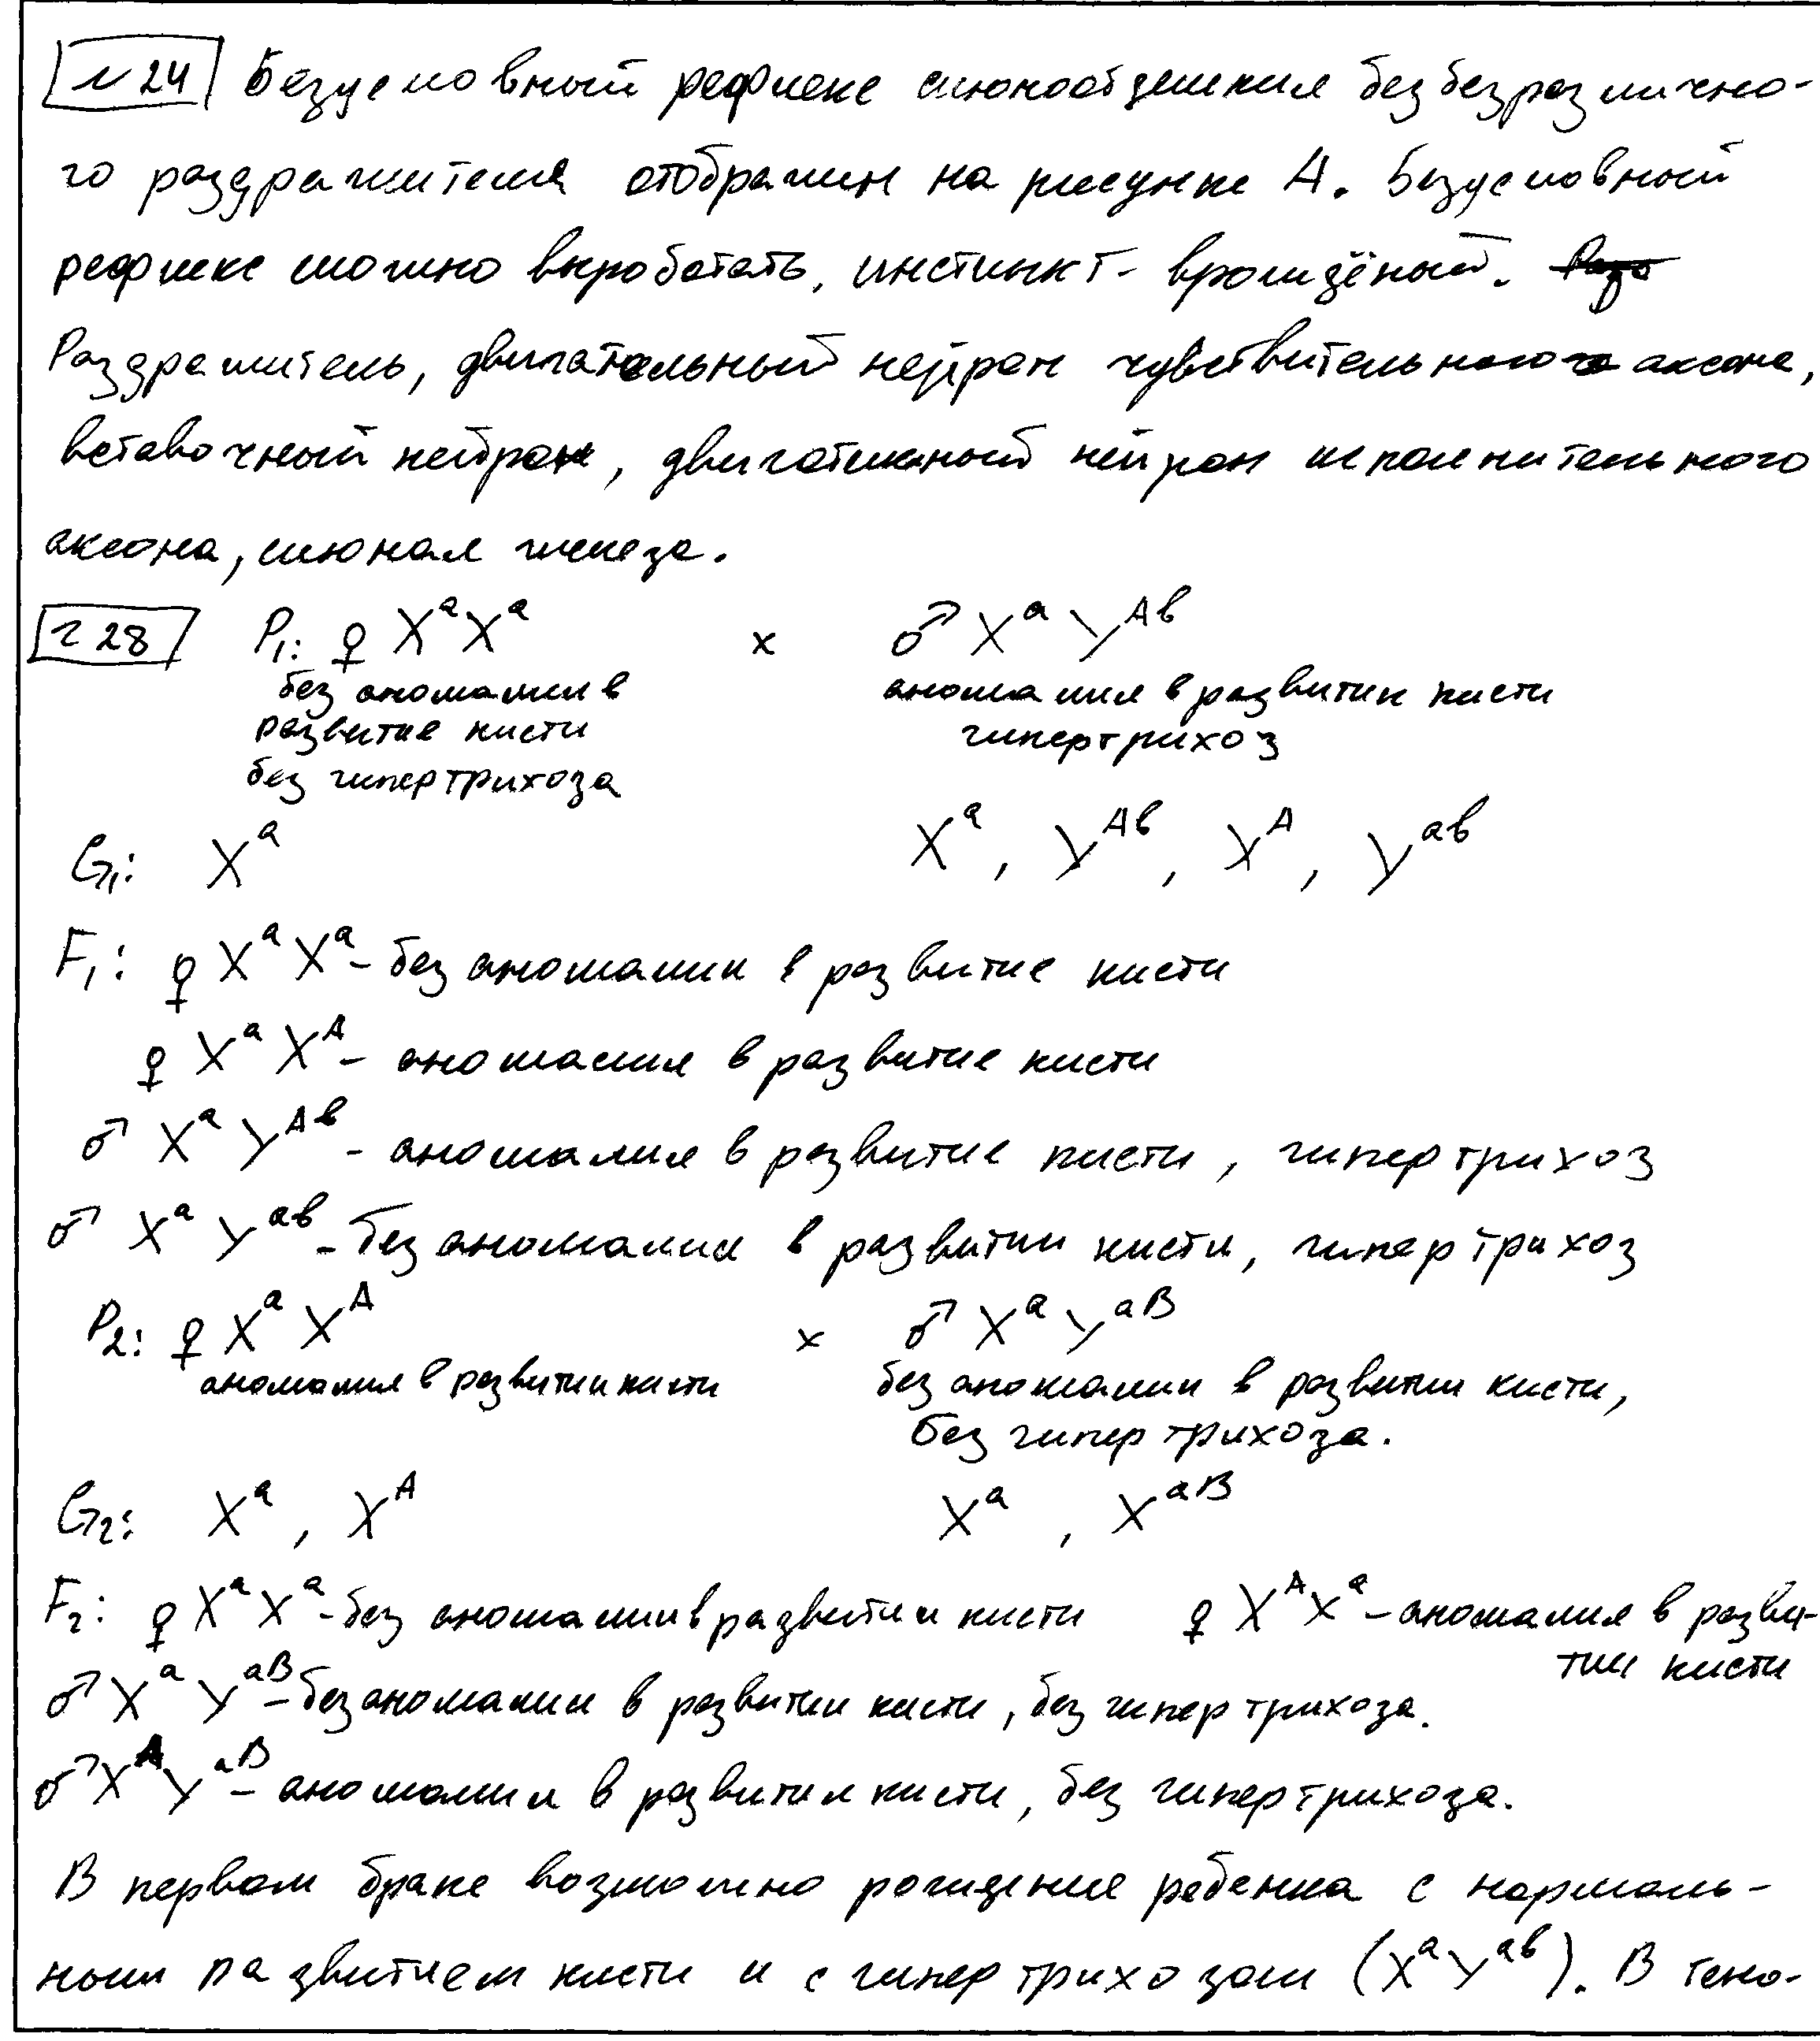 №24 Безусловный рефлекс слюноотделения без безразлично-
го раздражителя отображён на рисунке А. Безусловный
рефлекс можно выработать, инстинкт - врождёный.
Раздражитель, двигательный нейрон чувствительного аксона,
вставочный нейрон, двигательный нейрон исполнительного
аксона, слюнная железа.
№28 P₁: ♀ XᵃXᵃ x ♂ XᵃYᴬᵇ
без аномалии в аномалия в развитии кисти
развитие кисти гипертрихоз
без гипертрихоза
G₁: Xᵃ Xᵃ, Yᴬᵇ, Xᴬ, Yᵃᵇ
F₁: ♀ XᵃXᵃ - без аномалии в развитие кисти
♀ XᵃXᴬ - аномалия в развитие кисти
♂ XᵃYᴬᵇ - аномалия в развитие кисти, гипертрихоз
♂ XᵃYᵃᵇ - без аномалии в развитии кисти, гипертрихоз
P₂: ♀ XᵃXᴬ x ♂ XᵃYᵃᴮ
аномалия в развитии кисти без аномалии в развитии кисти,
без гипертрихоза.
G₂: Xᵃ, Xᴬ Xᵃ, Xᵃᴮ
F₂: ♀ XᵃXᵃ - без аномалии в развитии кисти ♀ XᴬXᵃ - аномалия в разви-
тии кисти
♂ XᵃYᵃᴮ - без аномалии в развитии кисти, без гипертрихоза.
♂ XᴬYᵃᴮ - аномалия в развитии кисти, без гипертрихоза.
В первом браке возможно рождение ребенка с нормаль-
ным развитием кисти и с гипертрихозом (XᵃYᵃᵇ). В гено-